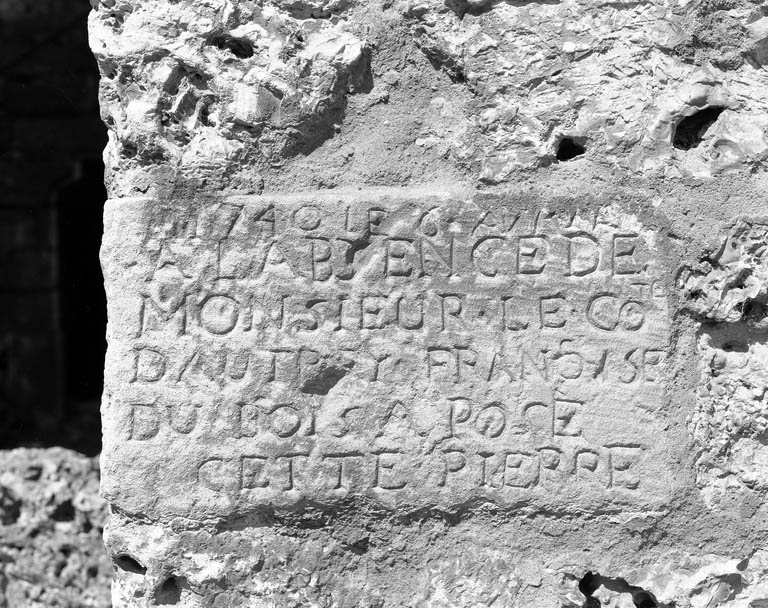 1740 LE 6
A LABSENCE DE
MONSIEUR·LE·COTE
DAUTREY FRANÇOISE
DU BOIS A POSE
CETTE PIERRE